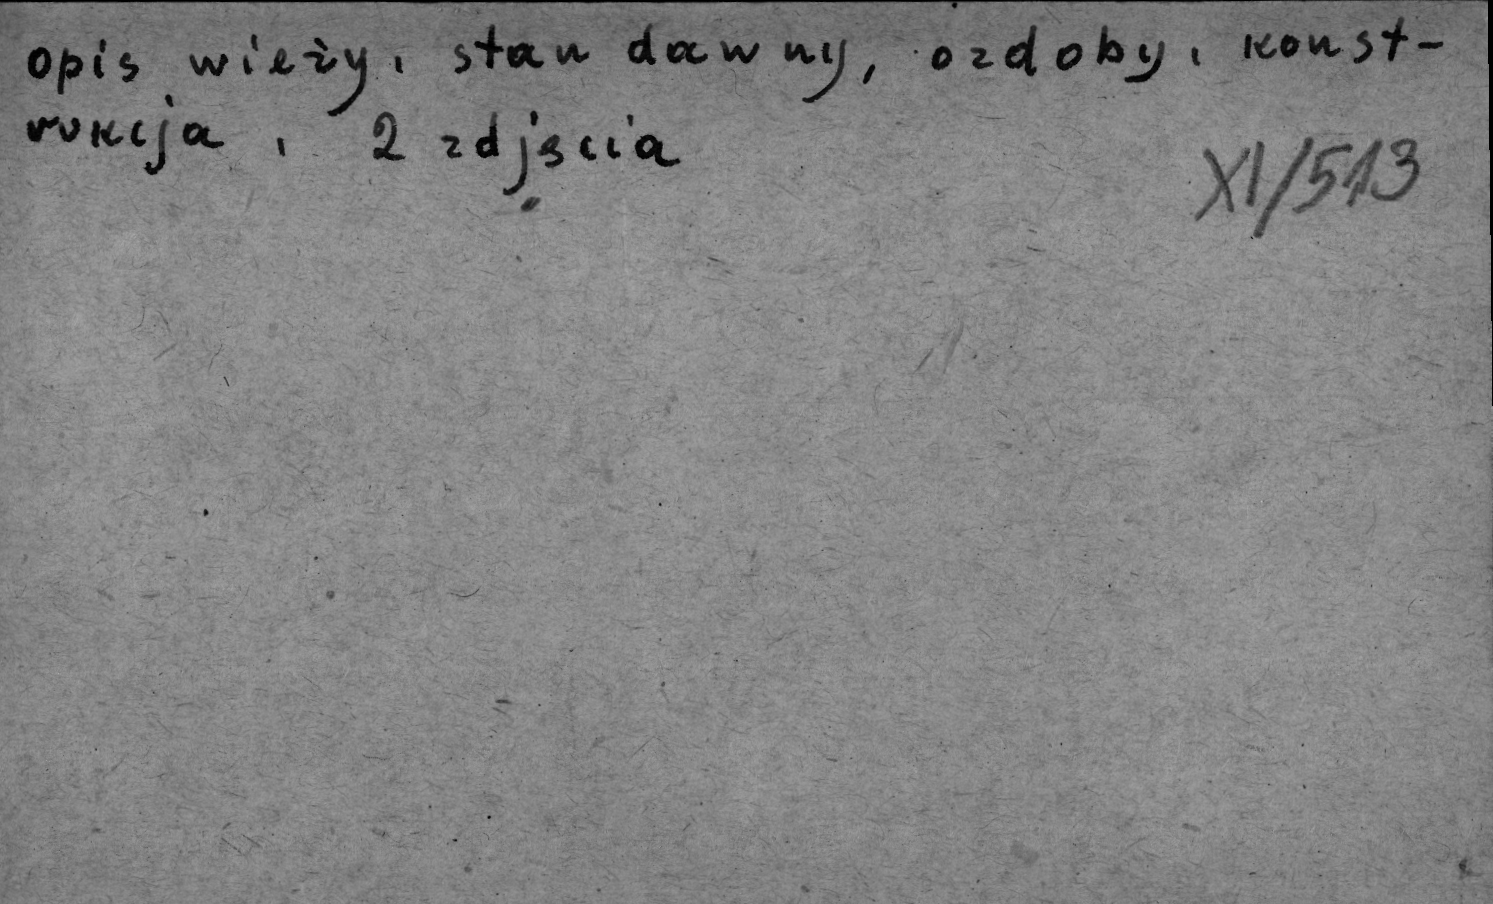 opis wieży, stan dawny, ozdoby, konst-
rukcja, 2 zdjęcia
XI/513